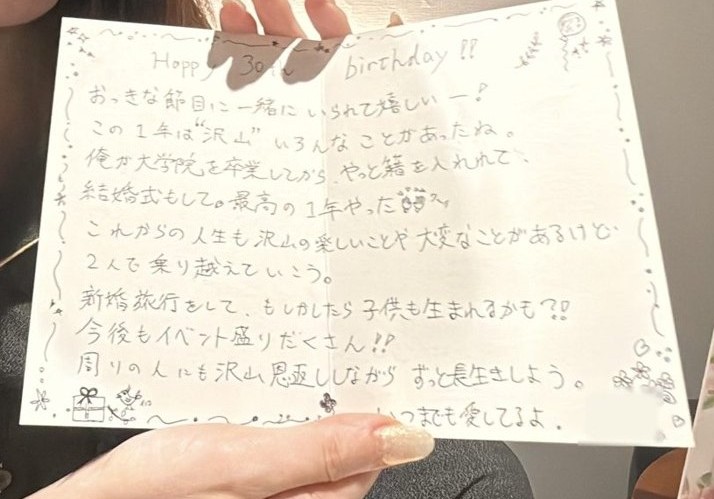 Happy 30th birthday!!
おっきな節目に一緒にいられて嬉しいー!
この1年は"沢山"いろんなことがあったね。
俺が大学院を卒業してから、やっと籍を入れれて、
結婚式もして。最高の1年やった
これからの人生も沢山の楽しいことや大変なことがあるけど
2人で乗り越えていこう。
新婚旅行をして、もしかしたら子供も生まれるかも?!
今後もイベント盛りだくさん!!
周りの人にも沢山恩返ししながらずっと長生きしよう。
いつまでも愛してるよ.